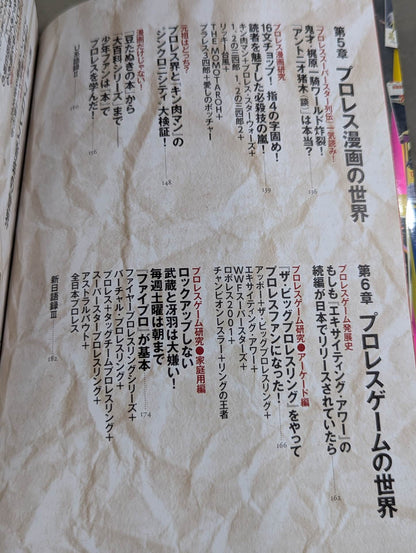 第5章 プロレス漫画の世界
『プロレススーパースター列伝』一気読み！
鬼才・梶原一騎ワールド炸裂！
「アントニオ猪木(談)」は本当？
136
プロレス漫画研究
16文チョップ！ 指4の字固め！
読者を魅了した必殺技の嵐！
キン肉マン＋プロレス・スターウォーズ＋
1・2の三四郎、1・2の三四郎2＋
リッキー台風＋
THE MOMOTAROH＋
プラレス3四郎＋愛しのボッチャー
139
元祖はどっち？
プロレス界と『キン肉マン』の
「シンクロニシティ」大検証！
148
漫画だけじゃない！
「豆たぬきの本」から
「大百科シリーズ」まで――
少年ファンは〝本〟で
プロレスを学んだ！
156
UWF語録Ⅱ
160
第6章 プロレスゲームの世界
プロレスゲーム発展史
もしも『エキサイティング・アワー』の
続編が日本でリリースされていたら
162
プロレスゲーム研究●アーケード編
『ザ・ビッグプロレスリング』をやって
プロレスファンになった！
アッポー＋ザ・ビッグプロレスリング＋
エキサイティング・アワー＋
WWFスーパースターズ＋
ロボレス2001＋
チャンピオンレスラー＋リングの王者
166
プロレスゲーム研究●家庭用編
ロックアップしない
武蔵と冴羽は大嫌い！
毎週土曜は朝まで
『ファイプロ』が基本
ファイヤープロレスリングシリーズ＋
バーチャルプロレスリング＋
プロレス＋タッグチームプロレスリング＋
スーパースタープロレスリング＋
アストラルバウト＋
全日本プロレス
174
新日語録Ⅲ
182